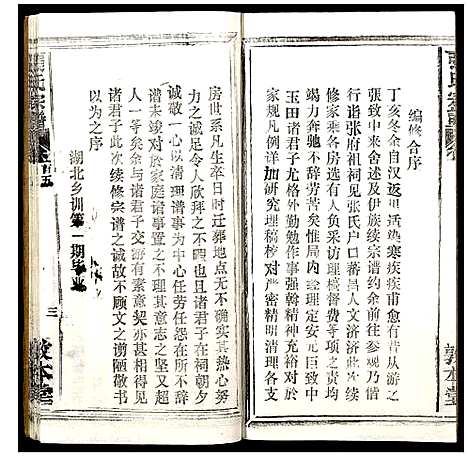 編修合序
丁亥冬余自汉返里适染寒疾疾甫愈有昔从游之
張致中來舍述及伊族续宗谱约余前往参观乃偕
行詣張府祖祠见張氏户口蕃昌人文济济此次续
修家乘各房选有人负責其修辑督費等项之責均
竭力奔驰不辞劳苦矣惟局内
经理定安元臣致中
玉田诸君子尤格外勤勉作事强幹精神充裕所有
家规凡例详加研究理稿校对严密精明清理各支
房世系凡生卒日时迁葬地点无不确实其热心努
力之诚足令人欣拜之不暇也且诸君子在祠朝夕
诚敬一心以清理谱事为中心任劳任怨在所不辞
谱未竣对於家庭諸事置之不理其意志之坚又超
人一等矣余与诸君子交游有素意契亦甚相得见
诸君子此次续修宗谱之诚故不顾文之谫陋敬书
以为之序
湖北乡训第一期毕业
三
敦本堂
敦本堂